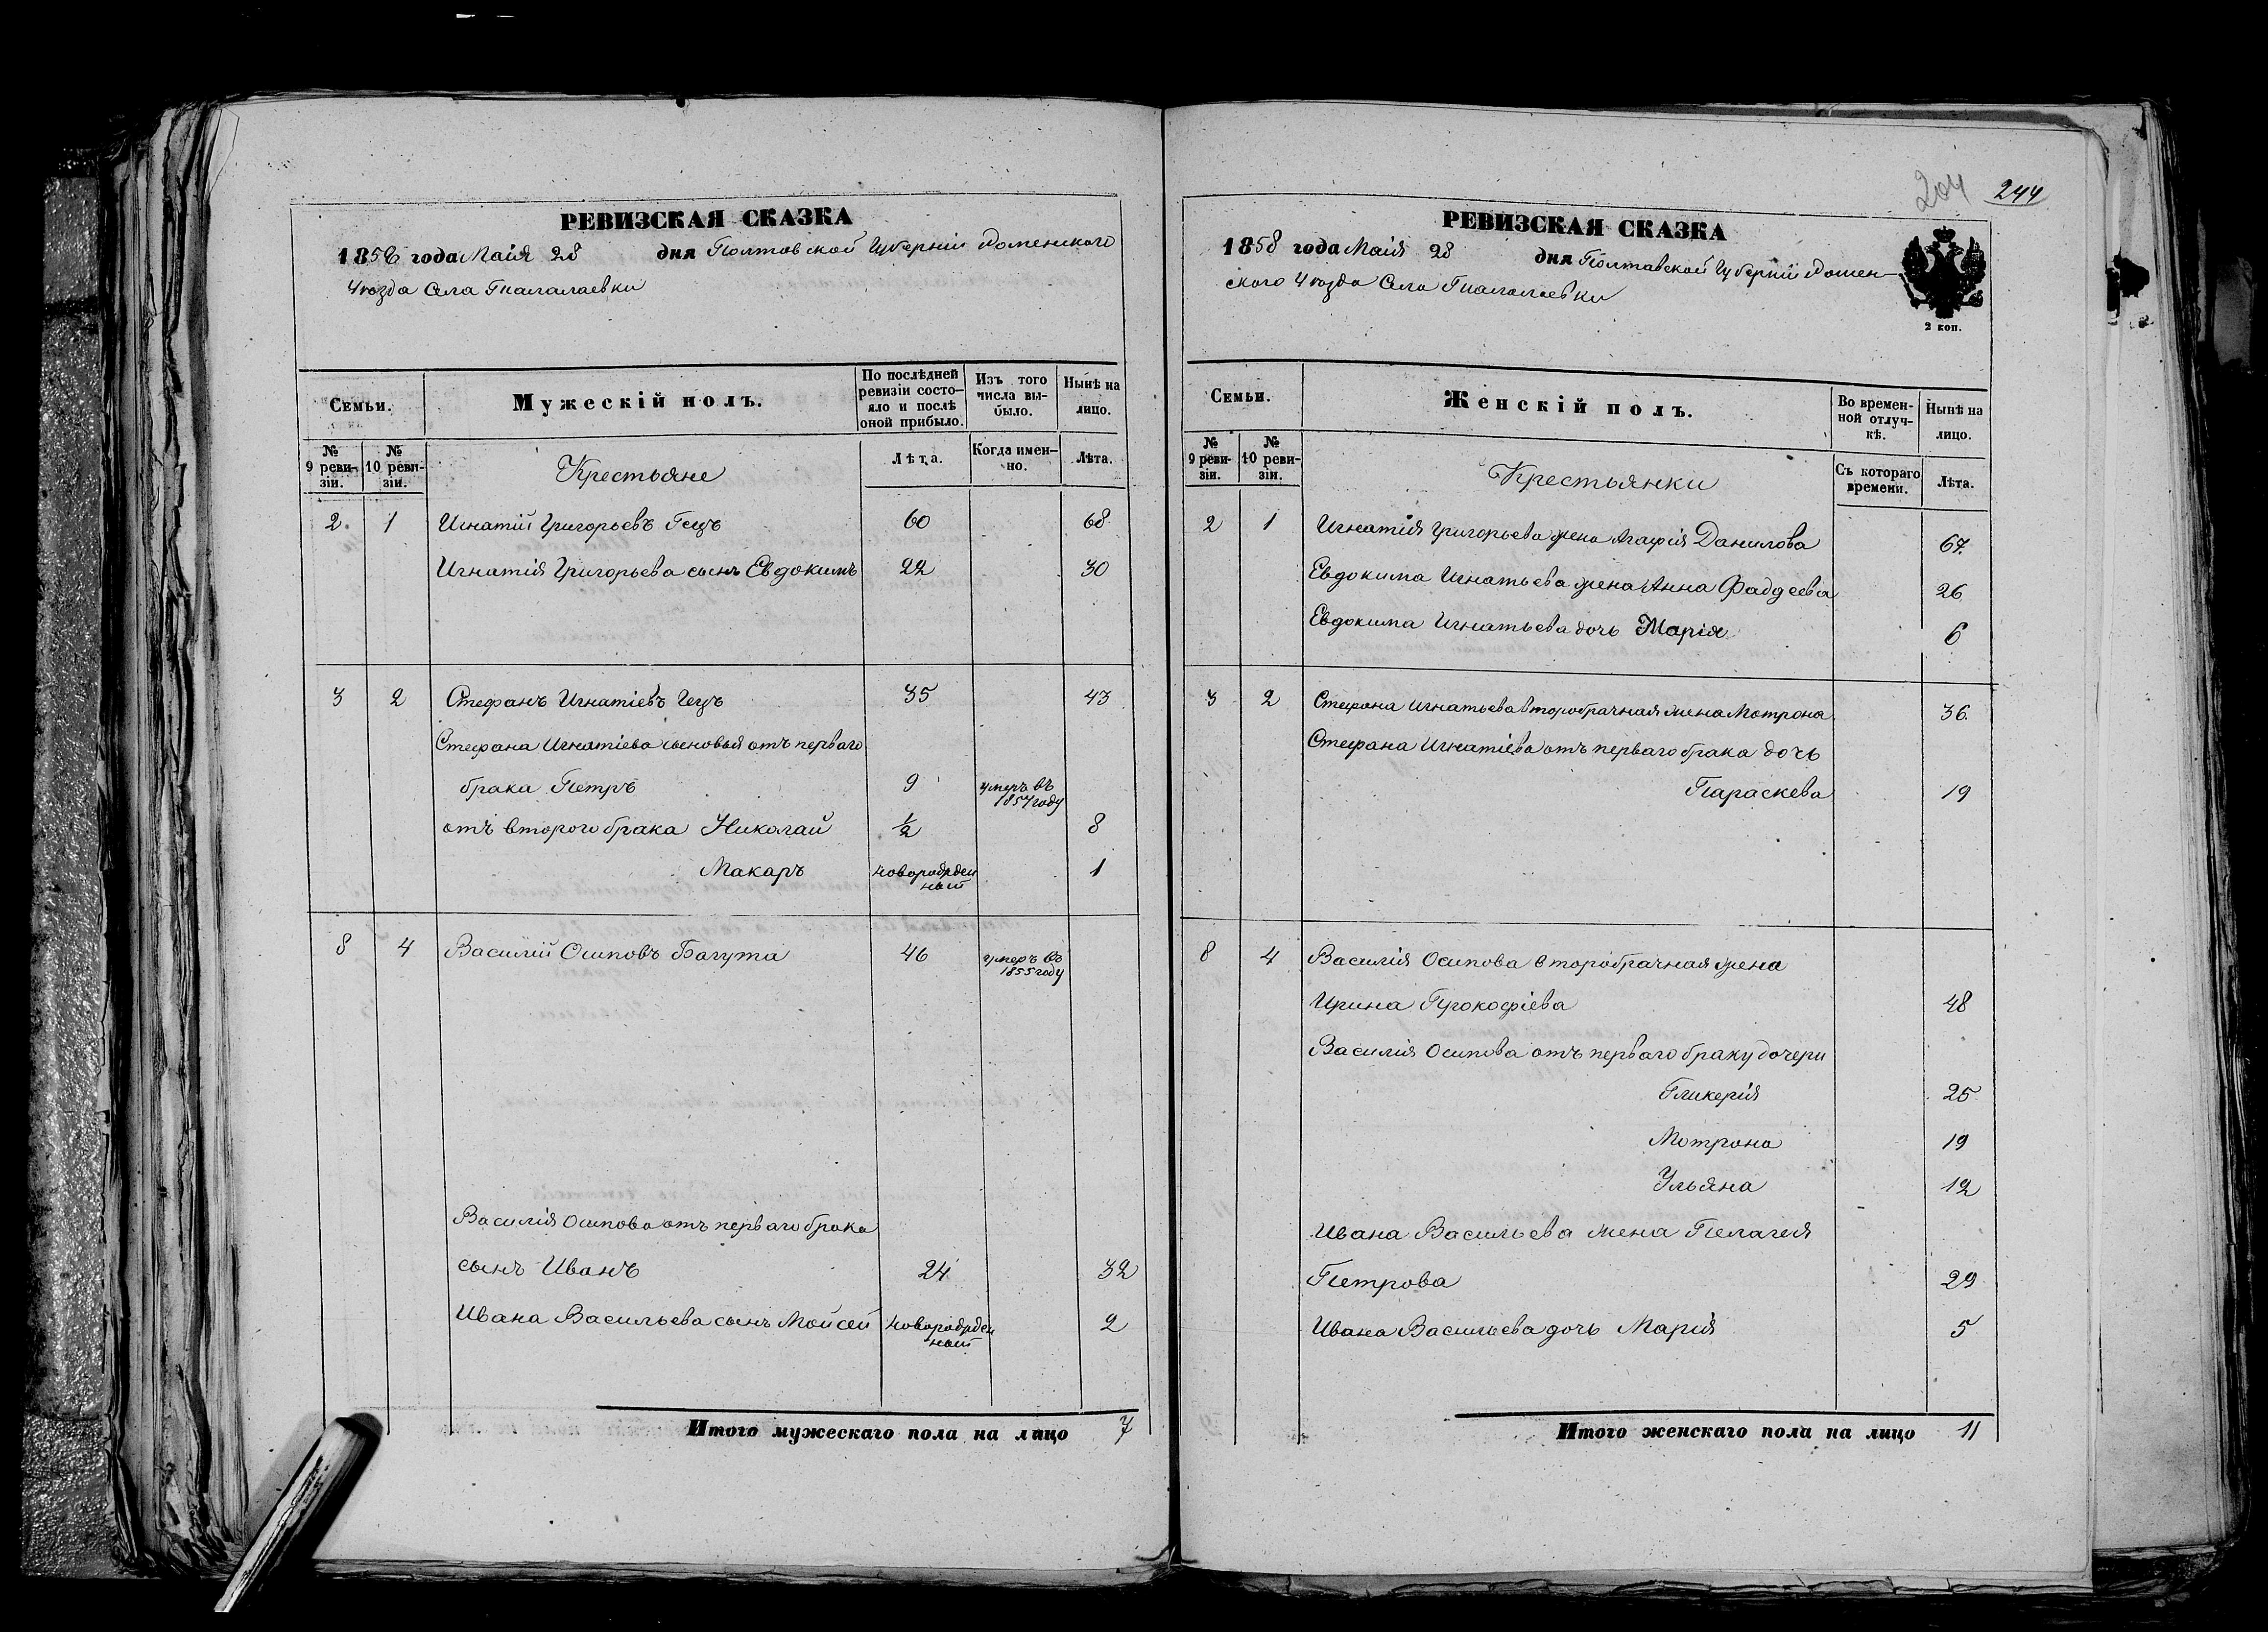 РЕВИЗСКАЯ СКАЗКА
1858 года Маія 28 дня Полтовской Губерніи Роменскаго
Уѣзда Села
Семьи.
Мужескій полъ.
По послѣдней ревизіи состояло и послѣ оной прибыло.
Изъ того числа выбыло.
Нынѣ на лицо.
№ 9 ревизіи.
№ 10 ревизіи.
Крестьяне
Лѣта.
Когда именно.
Лѣта.
2 1 Игнатій Григорьевъ Гецъ 60 68
Игнатія Григорьева сынъ Евдокимъ 22 30
3 2 Стефанъ Игнатіевъ Гецъ 35 43
Стефана Игнатіева сыновья отъ перваго
брака Петръ 9 умеръ въ 1857 году
отъ второго брака Николай ½ 8
Макаръ новорожденный 1
8 4 Василій Осиповъ Багута 46 умеръ въ 1855 году
Василія Осипова отъ перваго брака
сынъ Иванъ 24 32
Ивана Васильева сынъ Мойсей новорожденный 2
Итого мужескаго пола на лицо 7
204 244
РЕВИЗСКАЯ СКАЗКА
1858 года Маія 28 дня Полтавской Губерніи Ромен-
ского Уѣзда Села
2 коп.
Семьи.
Женскій полъ.
Во временной отлучкѣ.
Нынѣ на лицо.
№ 9 ревизіи.
№ 10 ревизіи.
Крестьянки
Съ котораго времени.
Лѣта.
2 1 Игнатія Григорьева жена Агафія Данилова 67
Евдокима Игнатьева жена Анна Фаддеева 26
Евдокима Игнатьева дочь Марія 6
3 2 Стефана Игнатьева второбрачная жена Мотрона 36
Стефана Игнатіева отъ перваго брака дочь
Параскева 19
8 4 Василія Осипова второбрачная жена
Ирина Прокофіева 48
Василія Осипова отъ перваго браку дочери
Гликерія 25
Мотрона 19
Ульяна 12
Ивана Васильева жена Пелагея
Петрова 29
Ивана Васильева дочь Марія 5
Итого женскаго пола на лицо 11